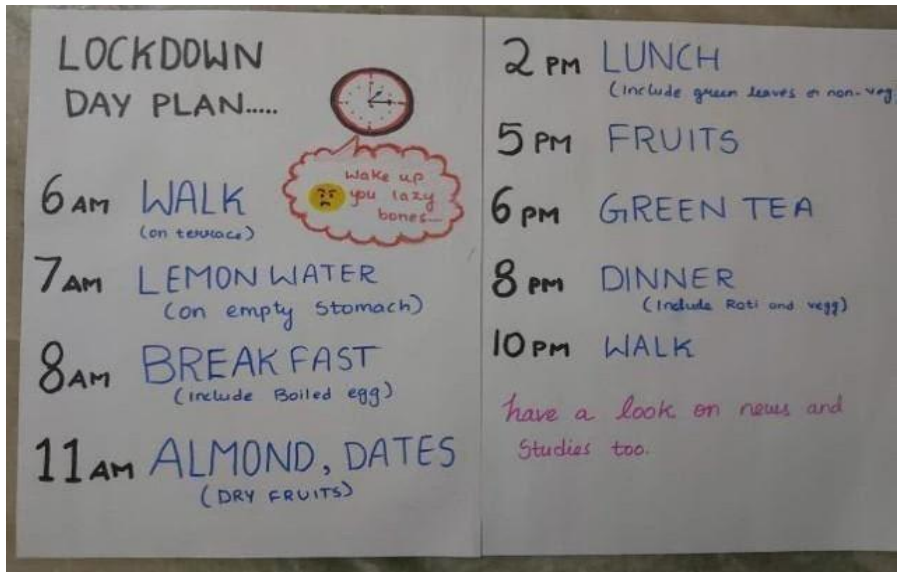 LOCKDOWN
DAY PLAN.....
Wake up
you lazy
bones....
6 AM WALK
(on terrace)
7 AM LEMON WATER
(on empty Stomach)
8 AM BREAKFAST
(include Boiled egg)
11 AM ALMOND, DATES
(DRY FRUITS)
2 PM LUNCH
(include green leaves or non-veg
5 PM FRUITS
6 PM GREEN TEA
8 PM DINNER
(include Roti and vegg)
10 PM WALK
have a look on news and
Studies too.